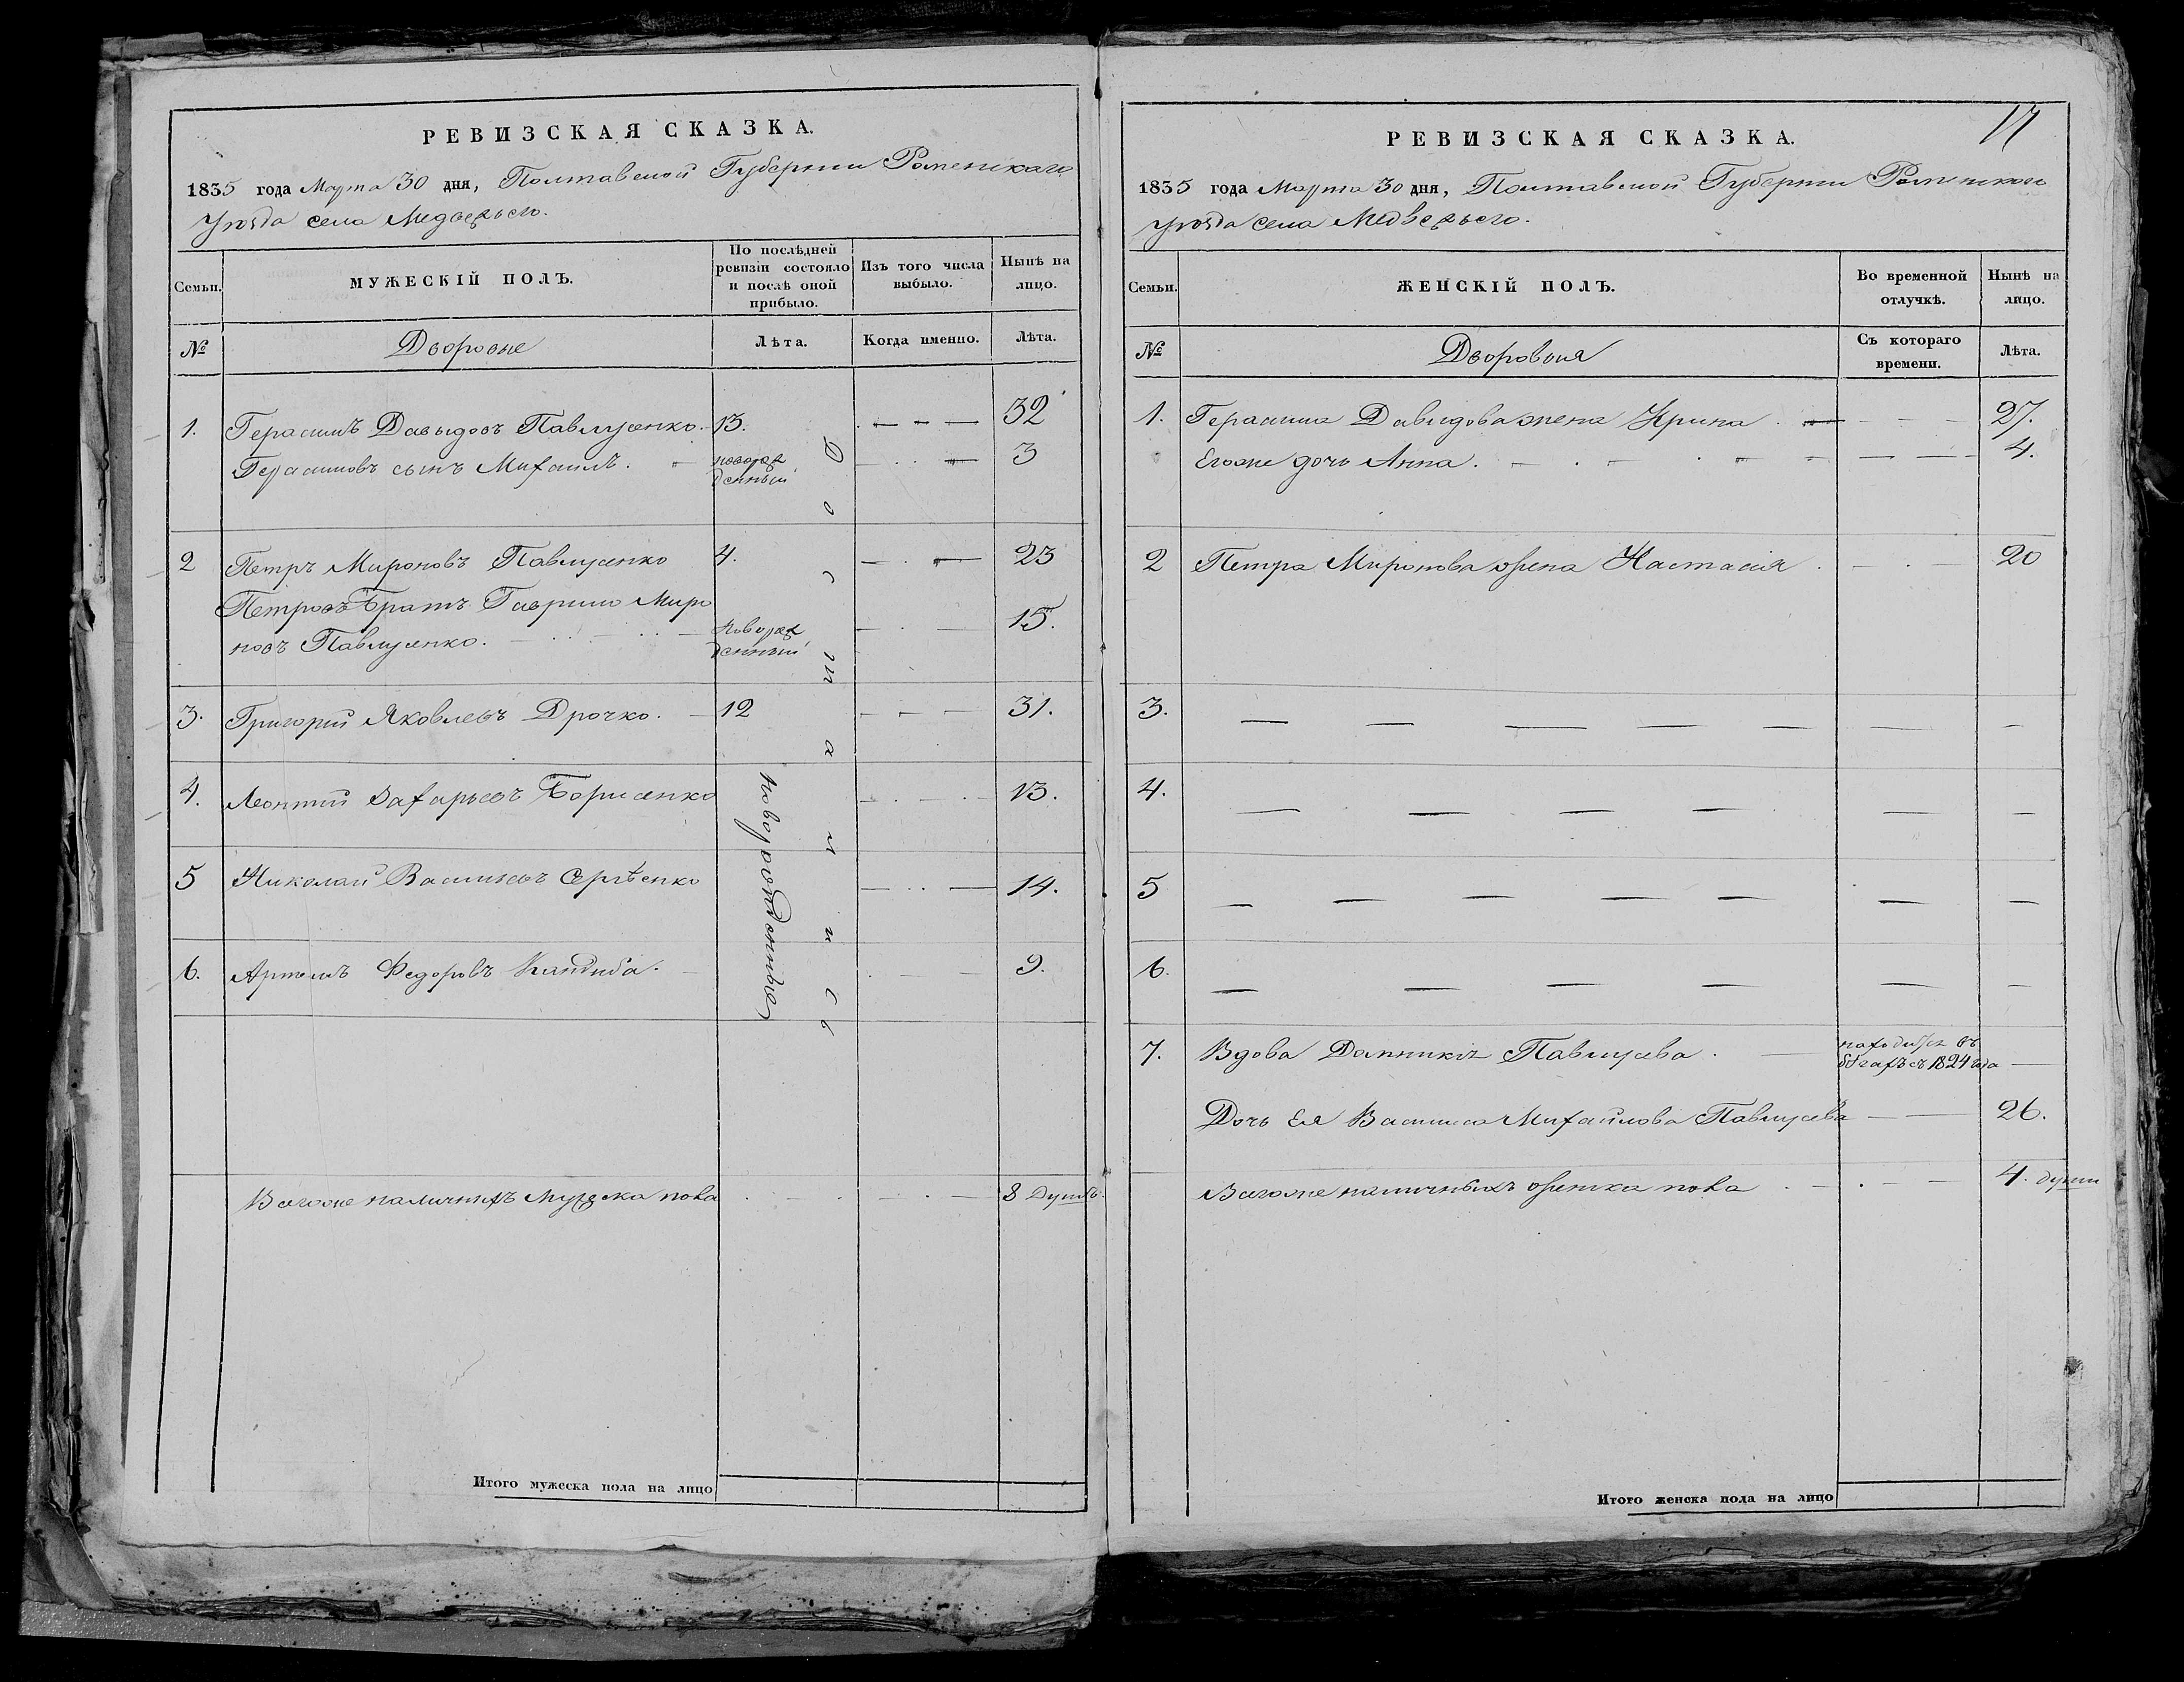 РЕВИЗСКАЯ СКАЗКА.
1835 года Марта 30 дня, Полтавской Губернии Роменскаго
Уѣзда села Медвежьего.
Семьи.
МУЖЕСКІЙ ПОЛЪ.
По послѣдней
ревизіи состояло
и послѣ оной
прибыло.
Изъ того числа
выбыло.
Нынѣ на
лицо.
№
Дворовые
Лѣта.
Когда именно.
Лѣта.
1. Герасимъ Давыдовъ Павлусенко. 13. 32
Герасимовъ сынъ Михаилъ. новорож 3
денный
2 Петръ Мироновъ Павлусенко 4. 23
Петровъ Братъ Гаврило Миро
новъ Павлусенко. новорож 15.
денный
3. Григорій Яковлевъ Дрочко. 12 31.
4. Леонтій Захарьевъ Борисенко 13.
5 Николай Васильевъ Сергѣенко 14.
6. Артемъ Федоровъ Кандиба. 9.
новорожденные
Достались
Всего же наличныхъ мужеска пола 8 Душъ.
Итого мужеска пола на лицо
17
РЕВИЗСКАЯ СКАЗКА.
1835 года Марта 30 дня, Полтавской Губернии Роменскаго
Уѣзда села Медвежьего.
Семьи.
ЖЕНСКІЙ ПОЛЪ.
Во временной
отлучкѣ.
Нынѣ на
лицо.
№
Дворовыя
Съ котораго
времени.
Лѣта.
1. Герасима Давидова жена Ирина 27.
Его же дочь Анна. 4.
2 Петра Миронова жена Настасия 20
3.
4.
5
6.
7. Вдова Домникія Павлусева находится въ
бѣгахъ съ 1824 года
Дочь Ея Василиса Михайлова Павлусева 26.
Всего же наличныхъ женска пола 4. души
Итого женска пола на лицо